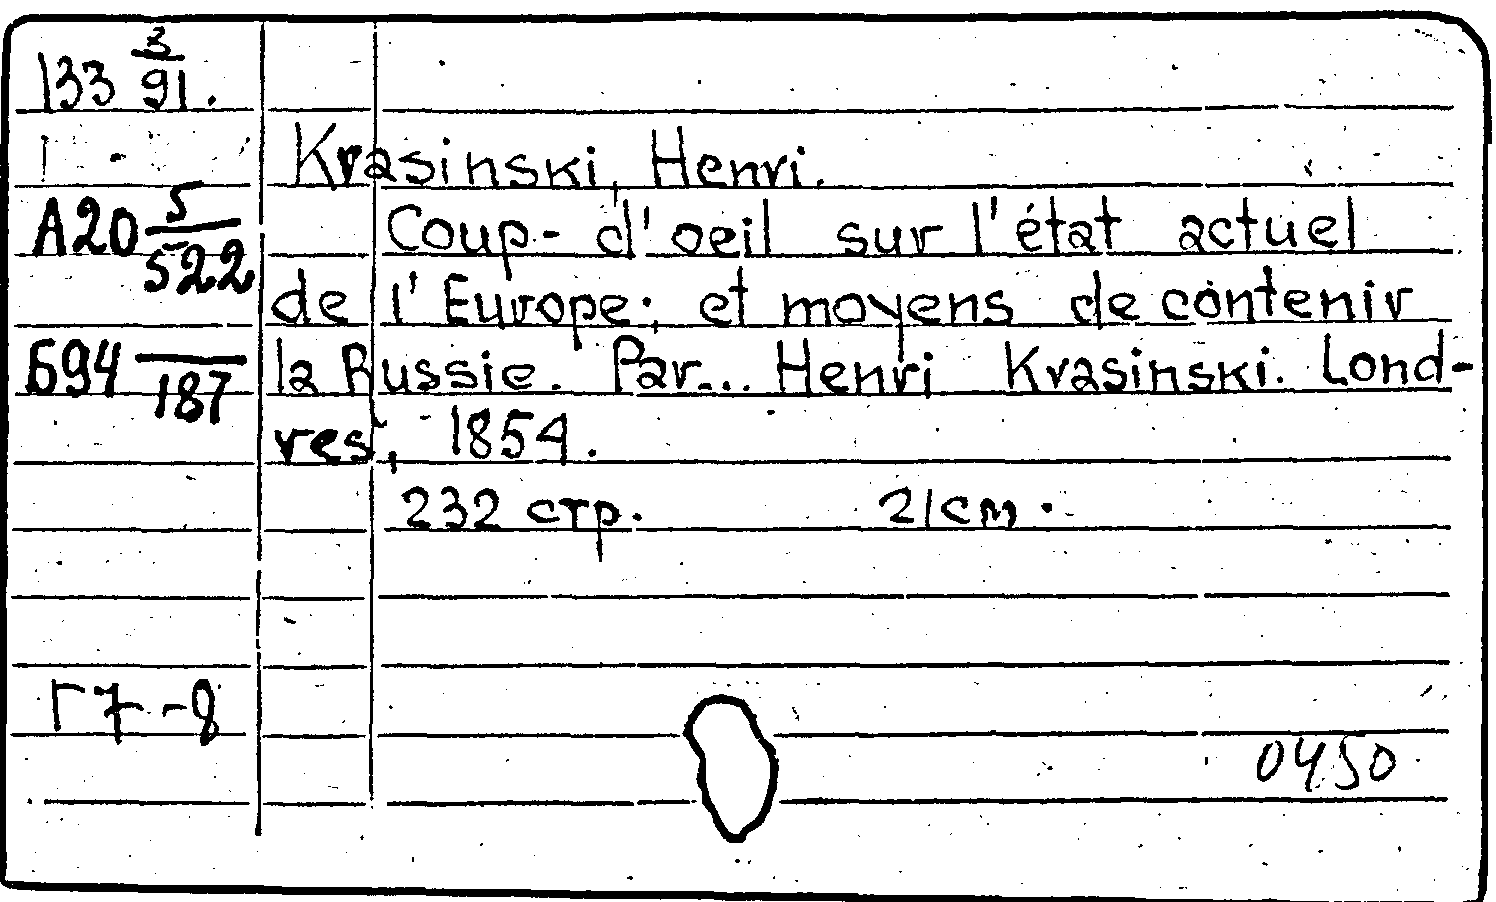 133 3/91.
Krasinski, Henri.
A20 5/522
Coup-d'oeil sur l'état actuel
de l'Europe; et moyens de contenir
Б94 —/187
la Russie. Par... Henri Krasinski. Lond-
res, 1854.
232 стр. 21см.
Г7-8
0450